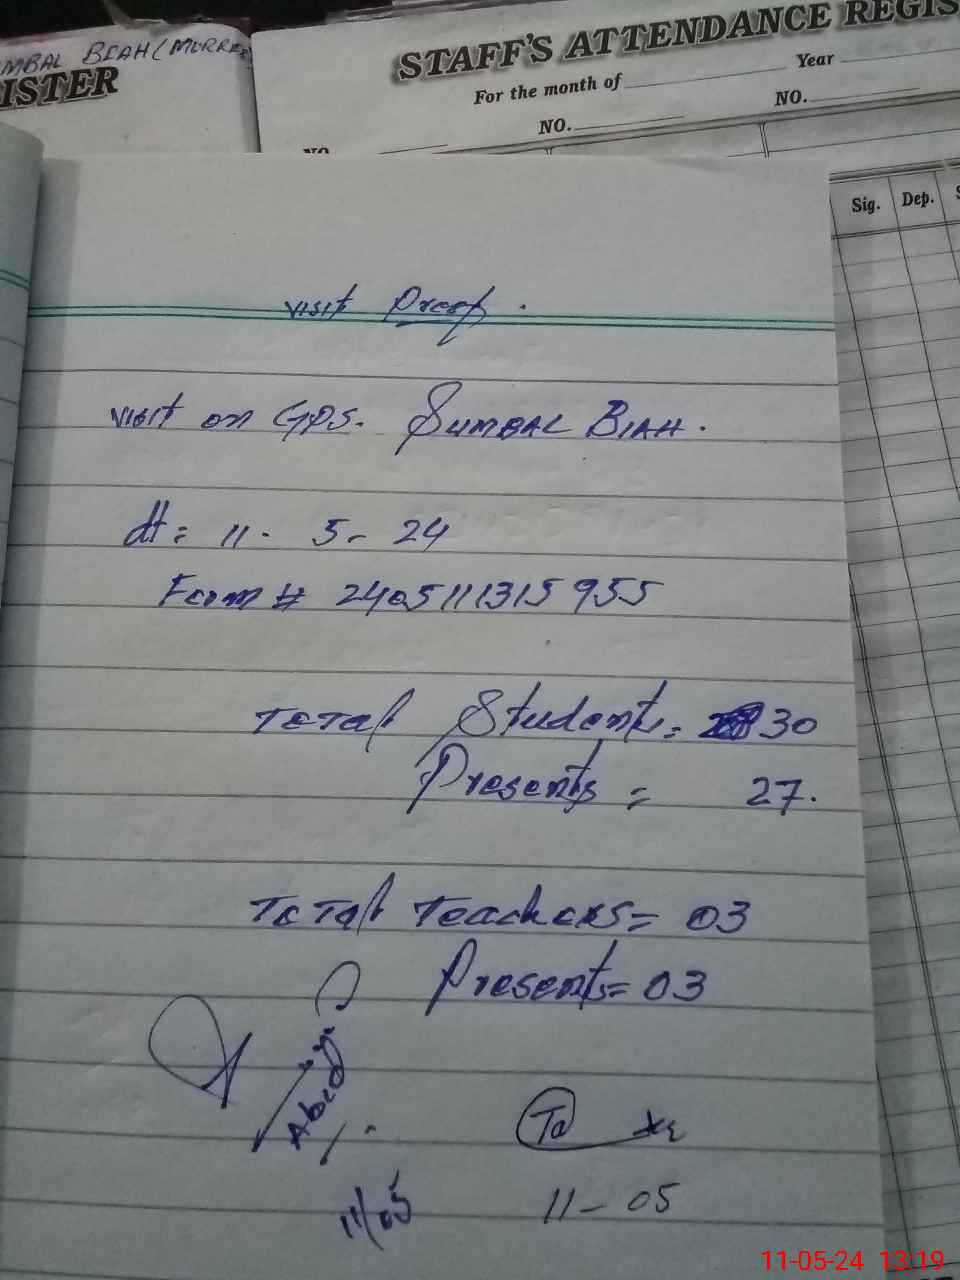 MBAL BIAH (MURREE)
ISTER
STAFF'S ATTENDANCE REGIS
For the month of Year
NO. NO. NO.
Sig. Dep. S
visit Proof.
visit on GPS. SUMBAL BIAH.
dt: 11- 5- 24
Form # 2405111315955
Total Students = 30
Presents = 27.
Total Teachers = 03
Presents = 03
Abid
11/05
11-05
11-05-24 13:19